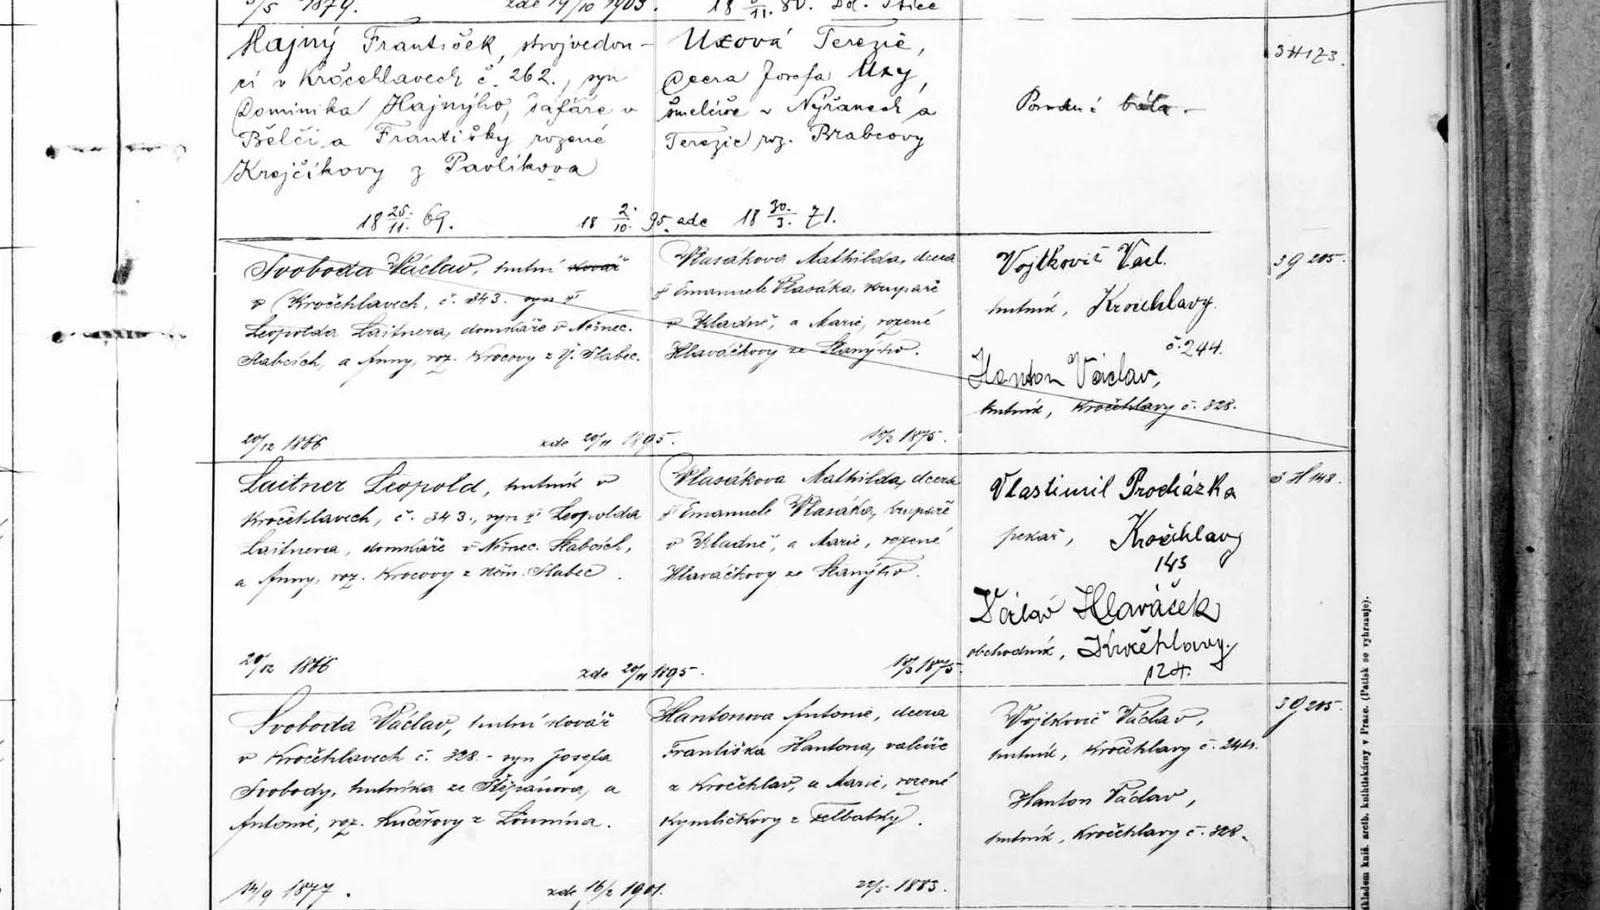 5/5 1879. zde 19/10 1903. 18 8/11. 80. Dd. Střec
Hajný František, strojvedou-
cí v Kročehlavech č. 262., syn
Dominika Hajnýho, šafáře v
Bělči a Františky rozené
Krejčíkovy z Pavlikova
18 25./11. 69. 18 2./10. 95. zde
Uxová Terezie,
dcera Josefa Uxy,
v Nýřanech a
Terezie roz. Brabcovy
18 30./3. 71.
Porodní bába.
3 H 173.
Svoboda Václav, hutní kovář
v Kročehlavech, č. 343. syn †
Leopolda Laitnera, domkáře v Němec.
Slabcích, a Anny, roz. Krocovy z N. Slabec.
20/12 1866 zde 20/11 1895.
Vlasákova Mathilda, dcera
† Emanuele Vlasáka, krupaře
v Kladně, a Marie, rozené
Hlaváčkovy ze Slanýho.
10/3 1875.
Vojtkovič Václ.
hutník, Kročehlavy.
č. 244.
Hanton Václav,
hutník, Kročehlavy č. 328.
3 G 205.
Laitner Leopold, hutník v
Kročehlavech, č. 343., syn † Leopolda
Laitnera, domkáře v Němec. Slabcích,
a Anny, roz. Krocovy z Něm. Slabec.
20/12 1866 zde 20/11 1895.
Vlasákova Mathilda, dcera
† Emanuele Vlasáka, krupaře
v Kladně, a Marie, rozené
Hlaváčkovy ze Slanýho.
10/3 1875.
Vlastimil Procházka
pekař, Kročehlavy
145
Václav Hlaváček
obchodník, Kročehlavy.
124.
3 H 148.
Svoboda Václav, hutní kovář
v Kročehlavech č. 328 - syn Josefa
Svobody, hutníka ze Štěpánova, a
Antonie, roz. Kučerovy z Lounína.
14/9 1877. zde 16/2 1901.
Hantonova Antonie, dcera
Františka Hantona, valcíře
z Kročehlav, a Marie, rozené
Kymličkovy z
22/5 1883.
Vojtkovič Václav,
hutník, Kročehlavy č. 244.
Hanton Václav,
hutník, Kročehlavy č. 328.
3 G 205.
Nákladem knih. arcib. knihtiskárny v Praze. (Patisk se vyhrazuje).